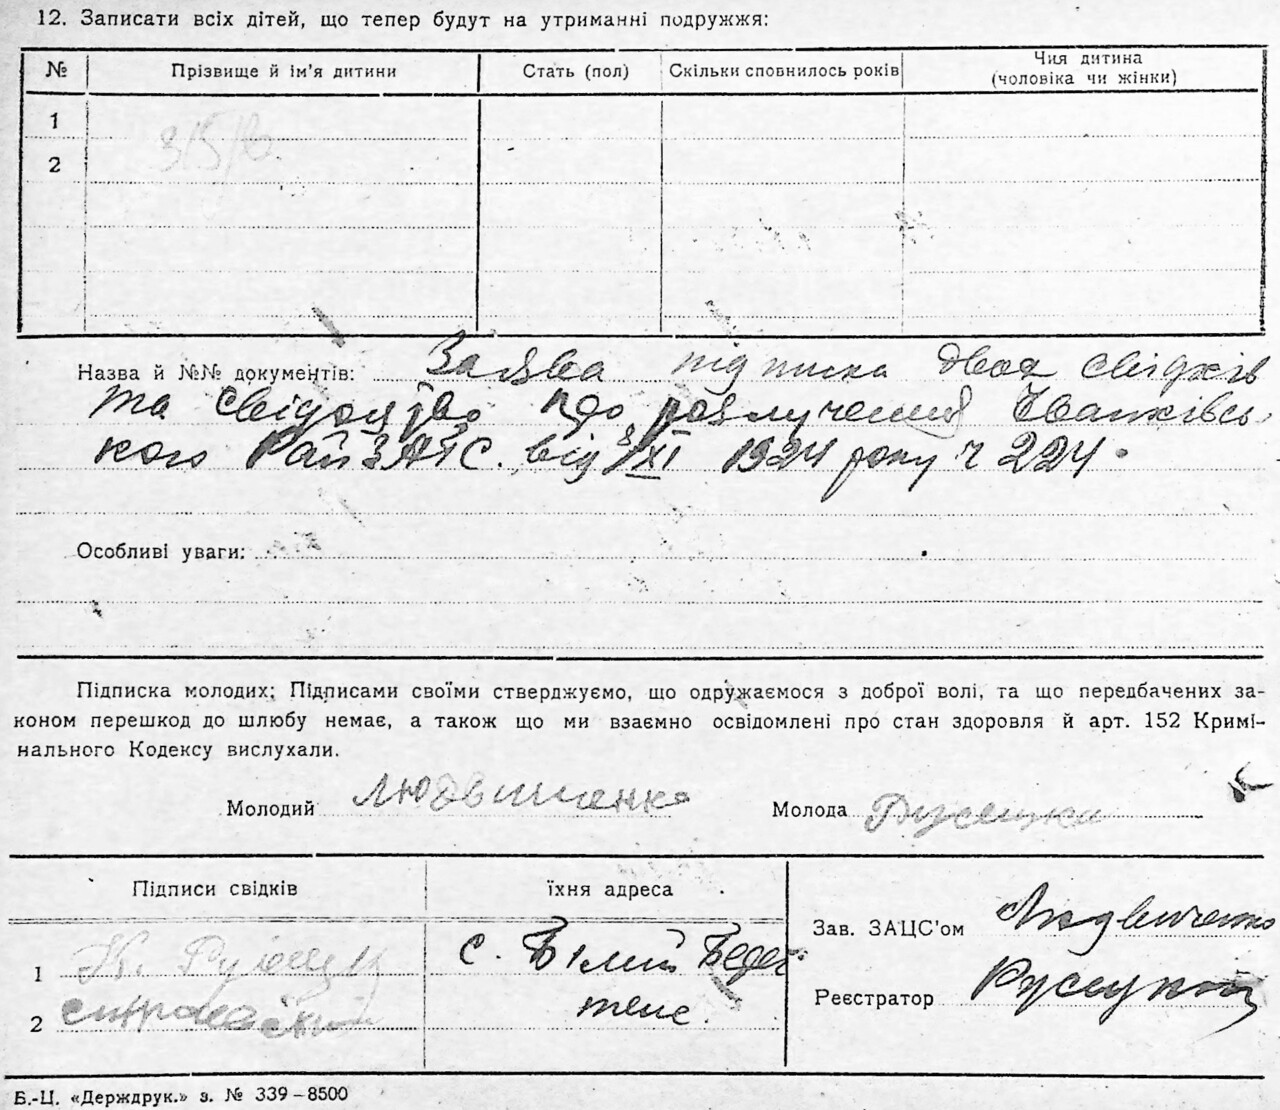 12. Записати всіх дітей, що тепер будут на утриманні подружжя:
№ Прізвище й ім'я дитини Стать (пол) Скільки сповнилось років Чия дитина (чоловіка чи жінки)
1
2
Назва й №№ документів: Заява підписка двоя свідків
та свідоцтво про розлучення Іванківсь-
кого РайЗАГС. від 8/XI 1924 року ч 224.
Особливі уваги:
Підписка молодих: Підписами своїми стверджуємо, що одружаємося з доброї волі, та що передбачених за-
коном перешкод до шлюбу немає, а також що ми взаємно освідомлені про стан здоровля й арт. 152 Кримі-
нального Кодексу вислухали.
Молодий Людвиченко Молода Русецка
Підписи свідків їхня адреса
Зав. ЗАЦС'ом Людвиченко
1 К. с. Білий Берег
Реєстратор
2 теж.
Б.-Ц. «Держдрук.» з. № 339–8500